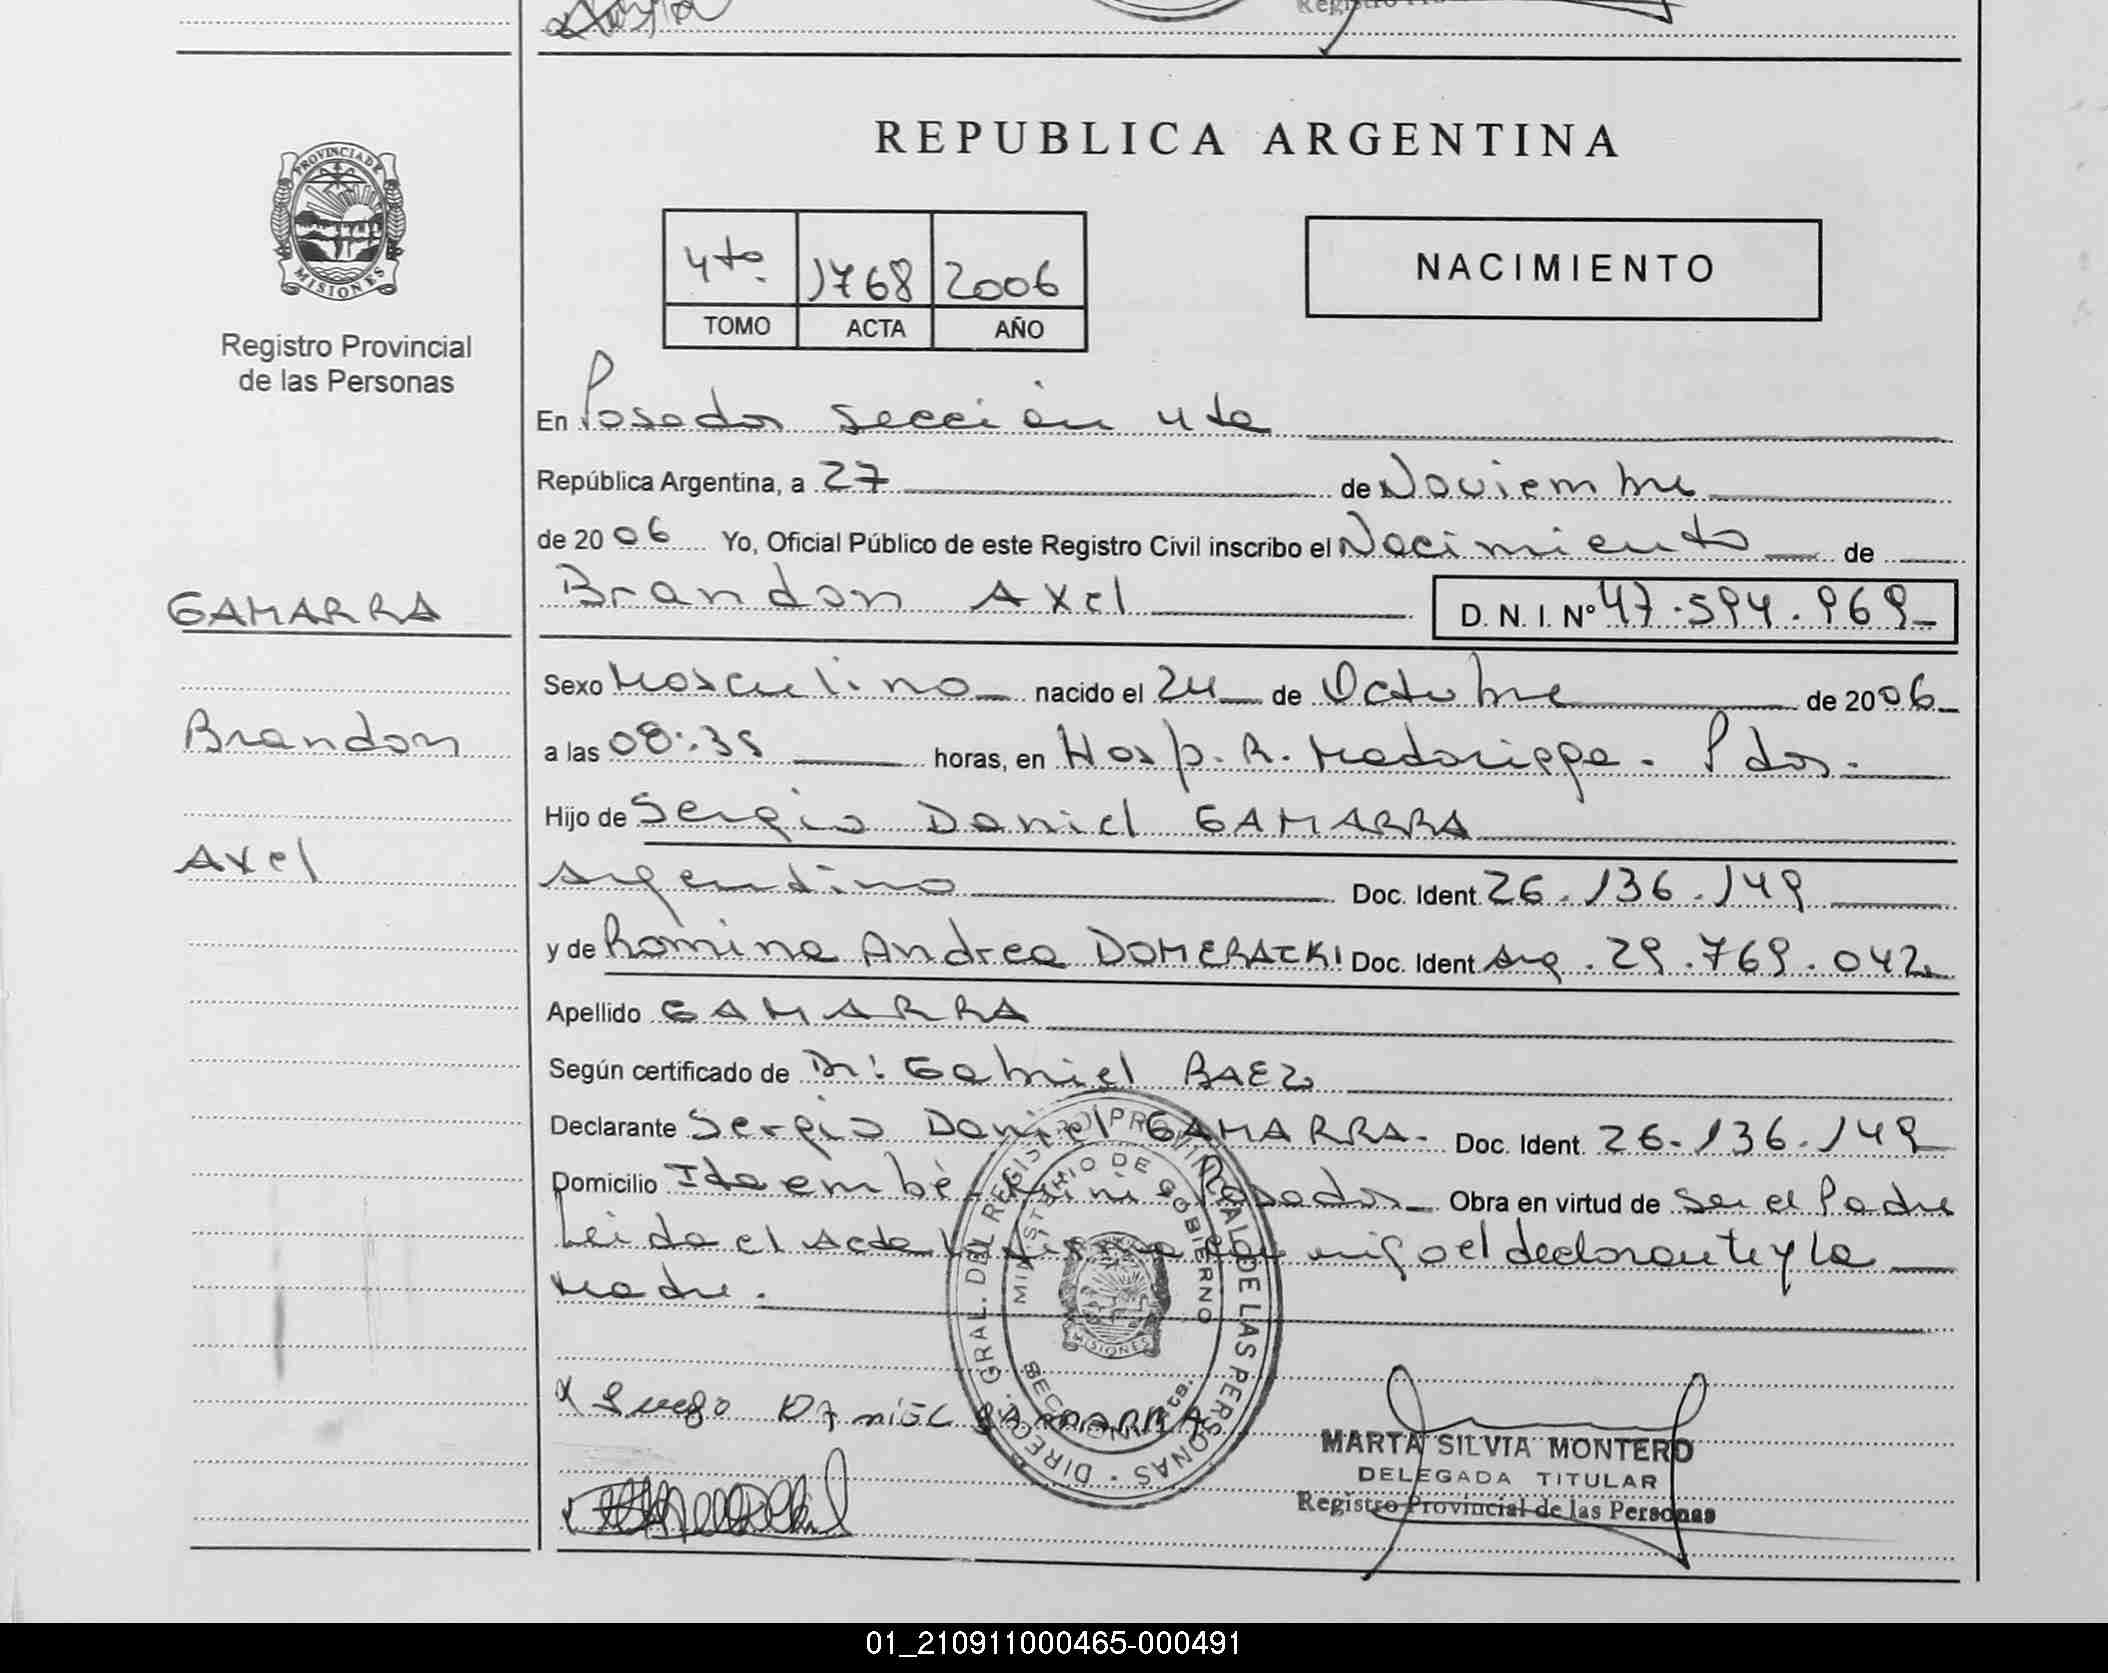 REPUBLICA ARGENTINA
PROVINCIA DE
MISIONES
Registro Provincial
de las Personas
4to. 1768 2006
TOMO ACTA AÑO
NACIMIENTO
En Posadas sección 4ta
República Argentina, a 27 de Noviembre
de 2006 Yo, Oficial Público de este Registro Civil inscribo el Nacimiento de
Brandon Axel D. N. I. Nº 47.594.969
GAMARRA
Brandon
Axel
Sexo Masculino nacido el 24 de Octubre de 2006
a las 08:35 horas, en Hosp. R. Madariaga. Pdas.
Hijo de Sergio Daniel GAMARRA
Argentino Doc. Ident. 26.136.149
y de Romina Andrea DOMERACKI Doc. Ident Arg. 29.769.042
Apellido GAMARRA
Según certificado de Dr: Gabriel BAEZ
Declarante Sergio Daniel GAMARRA. Doc. Ident. 26.136.149
Domicilio Itaembé Mini Posadas Obra en virtud de Ser el Padre
Leida el Acta la firma conmigo el declarante y la
Madre.
DIREC. GRAL. DEL REGISTRO PROVINCIAL DE LAS PERSONAS
MINISTERIO DE GOBIERNO
MISIONES
DANIEL GAMARRA
MARTA SILVIA MONTERO
DELEGADA TITULAR
Registro Provincial de las Personas
01_210911000465-000491